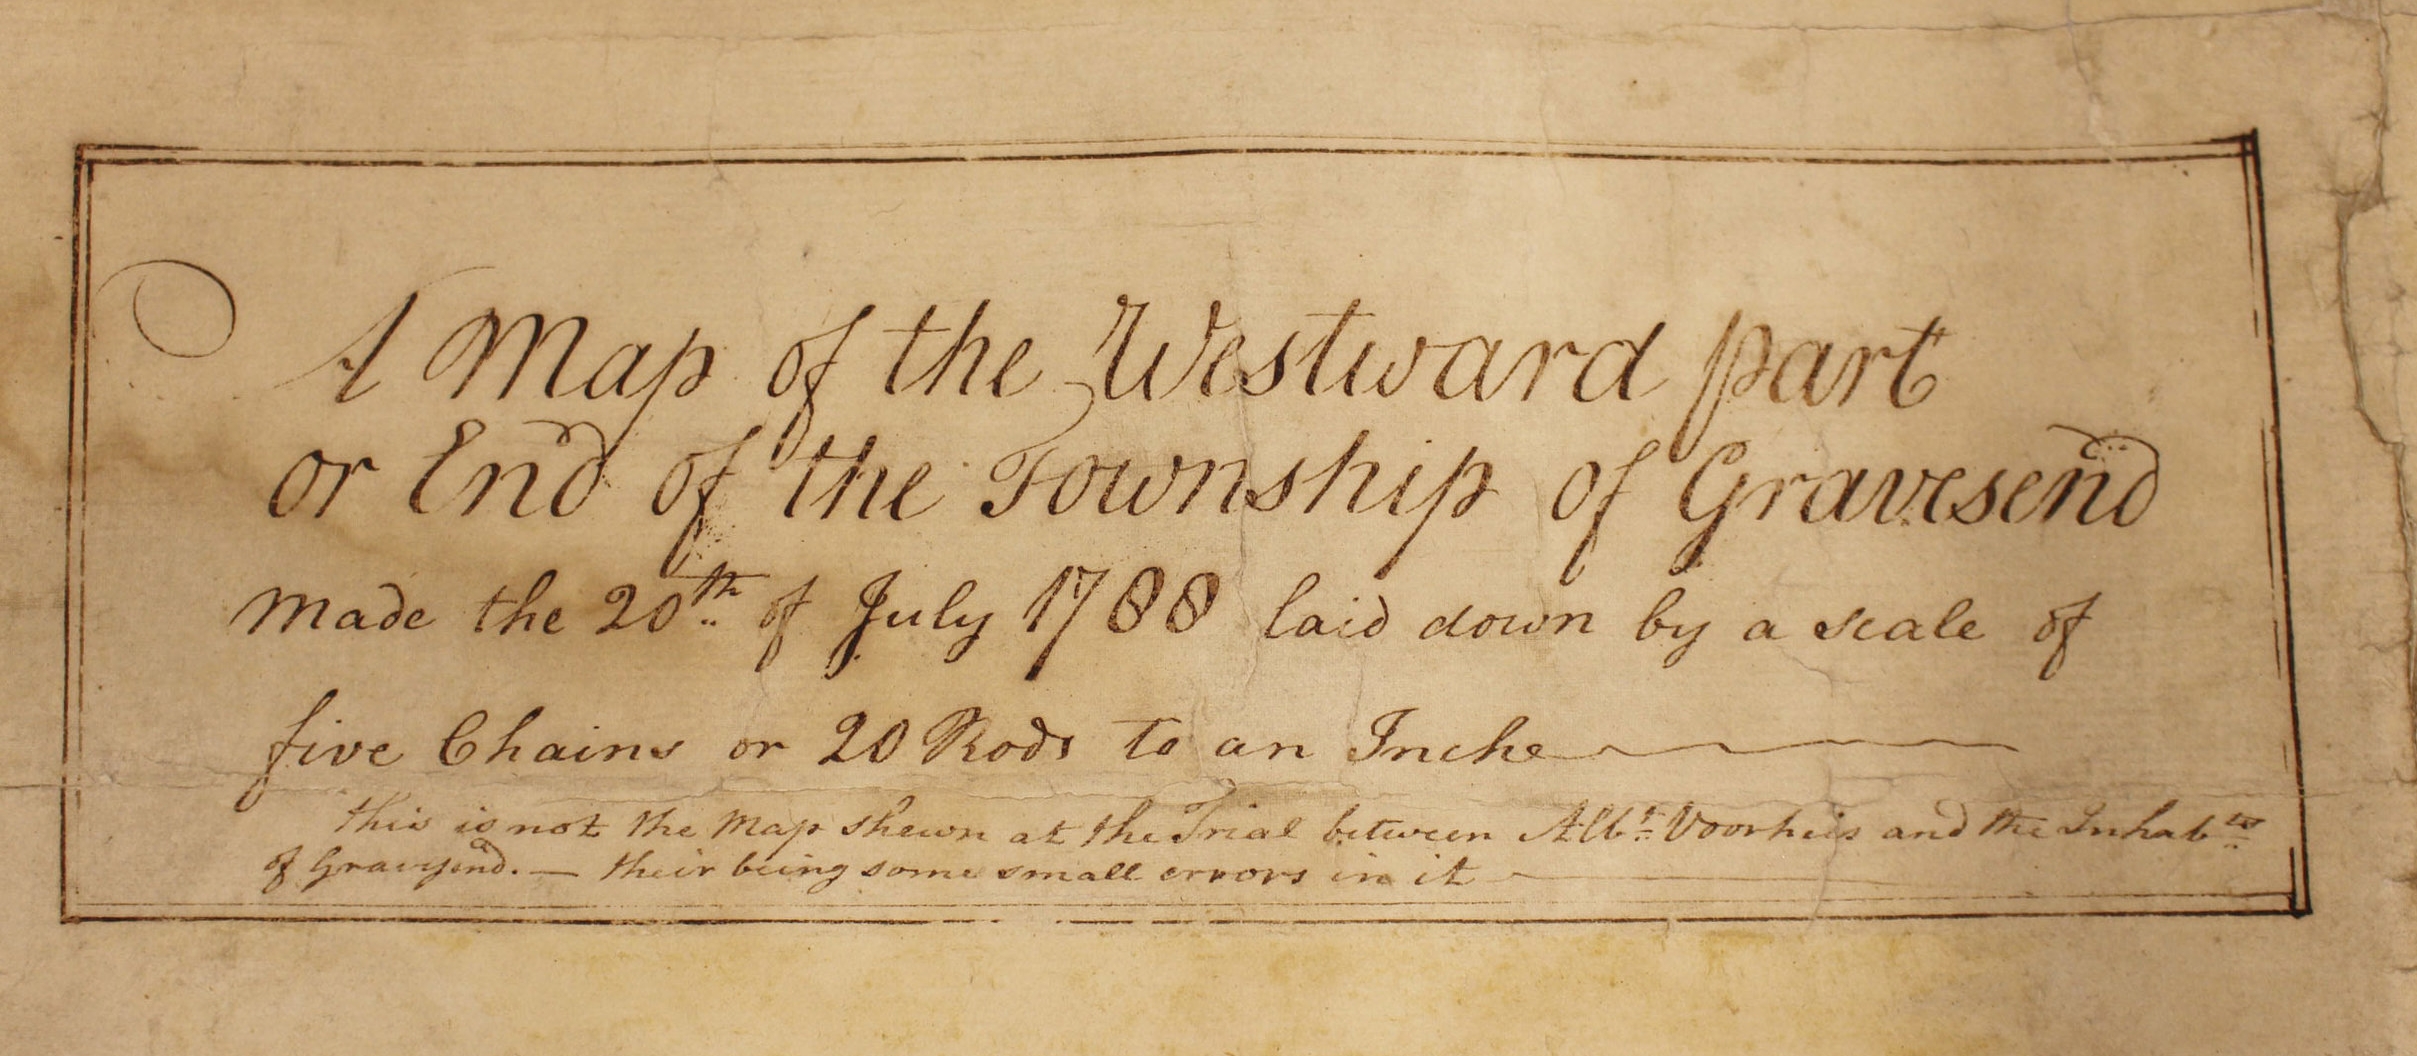 A Map of the Westward part
or End of the Township of Gravesend
Made the 20th of July 1788 laid down by a scale of
five Chains or 20 Rods to an Inche
this is not the Map shewn at the Trial between Albt Voorheis and the Inhabts
of Gravesend. — their being some small errors in it